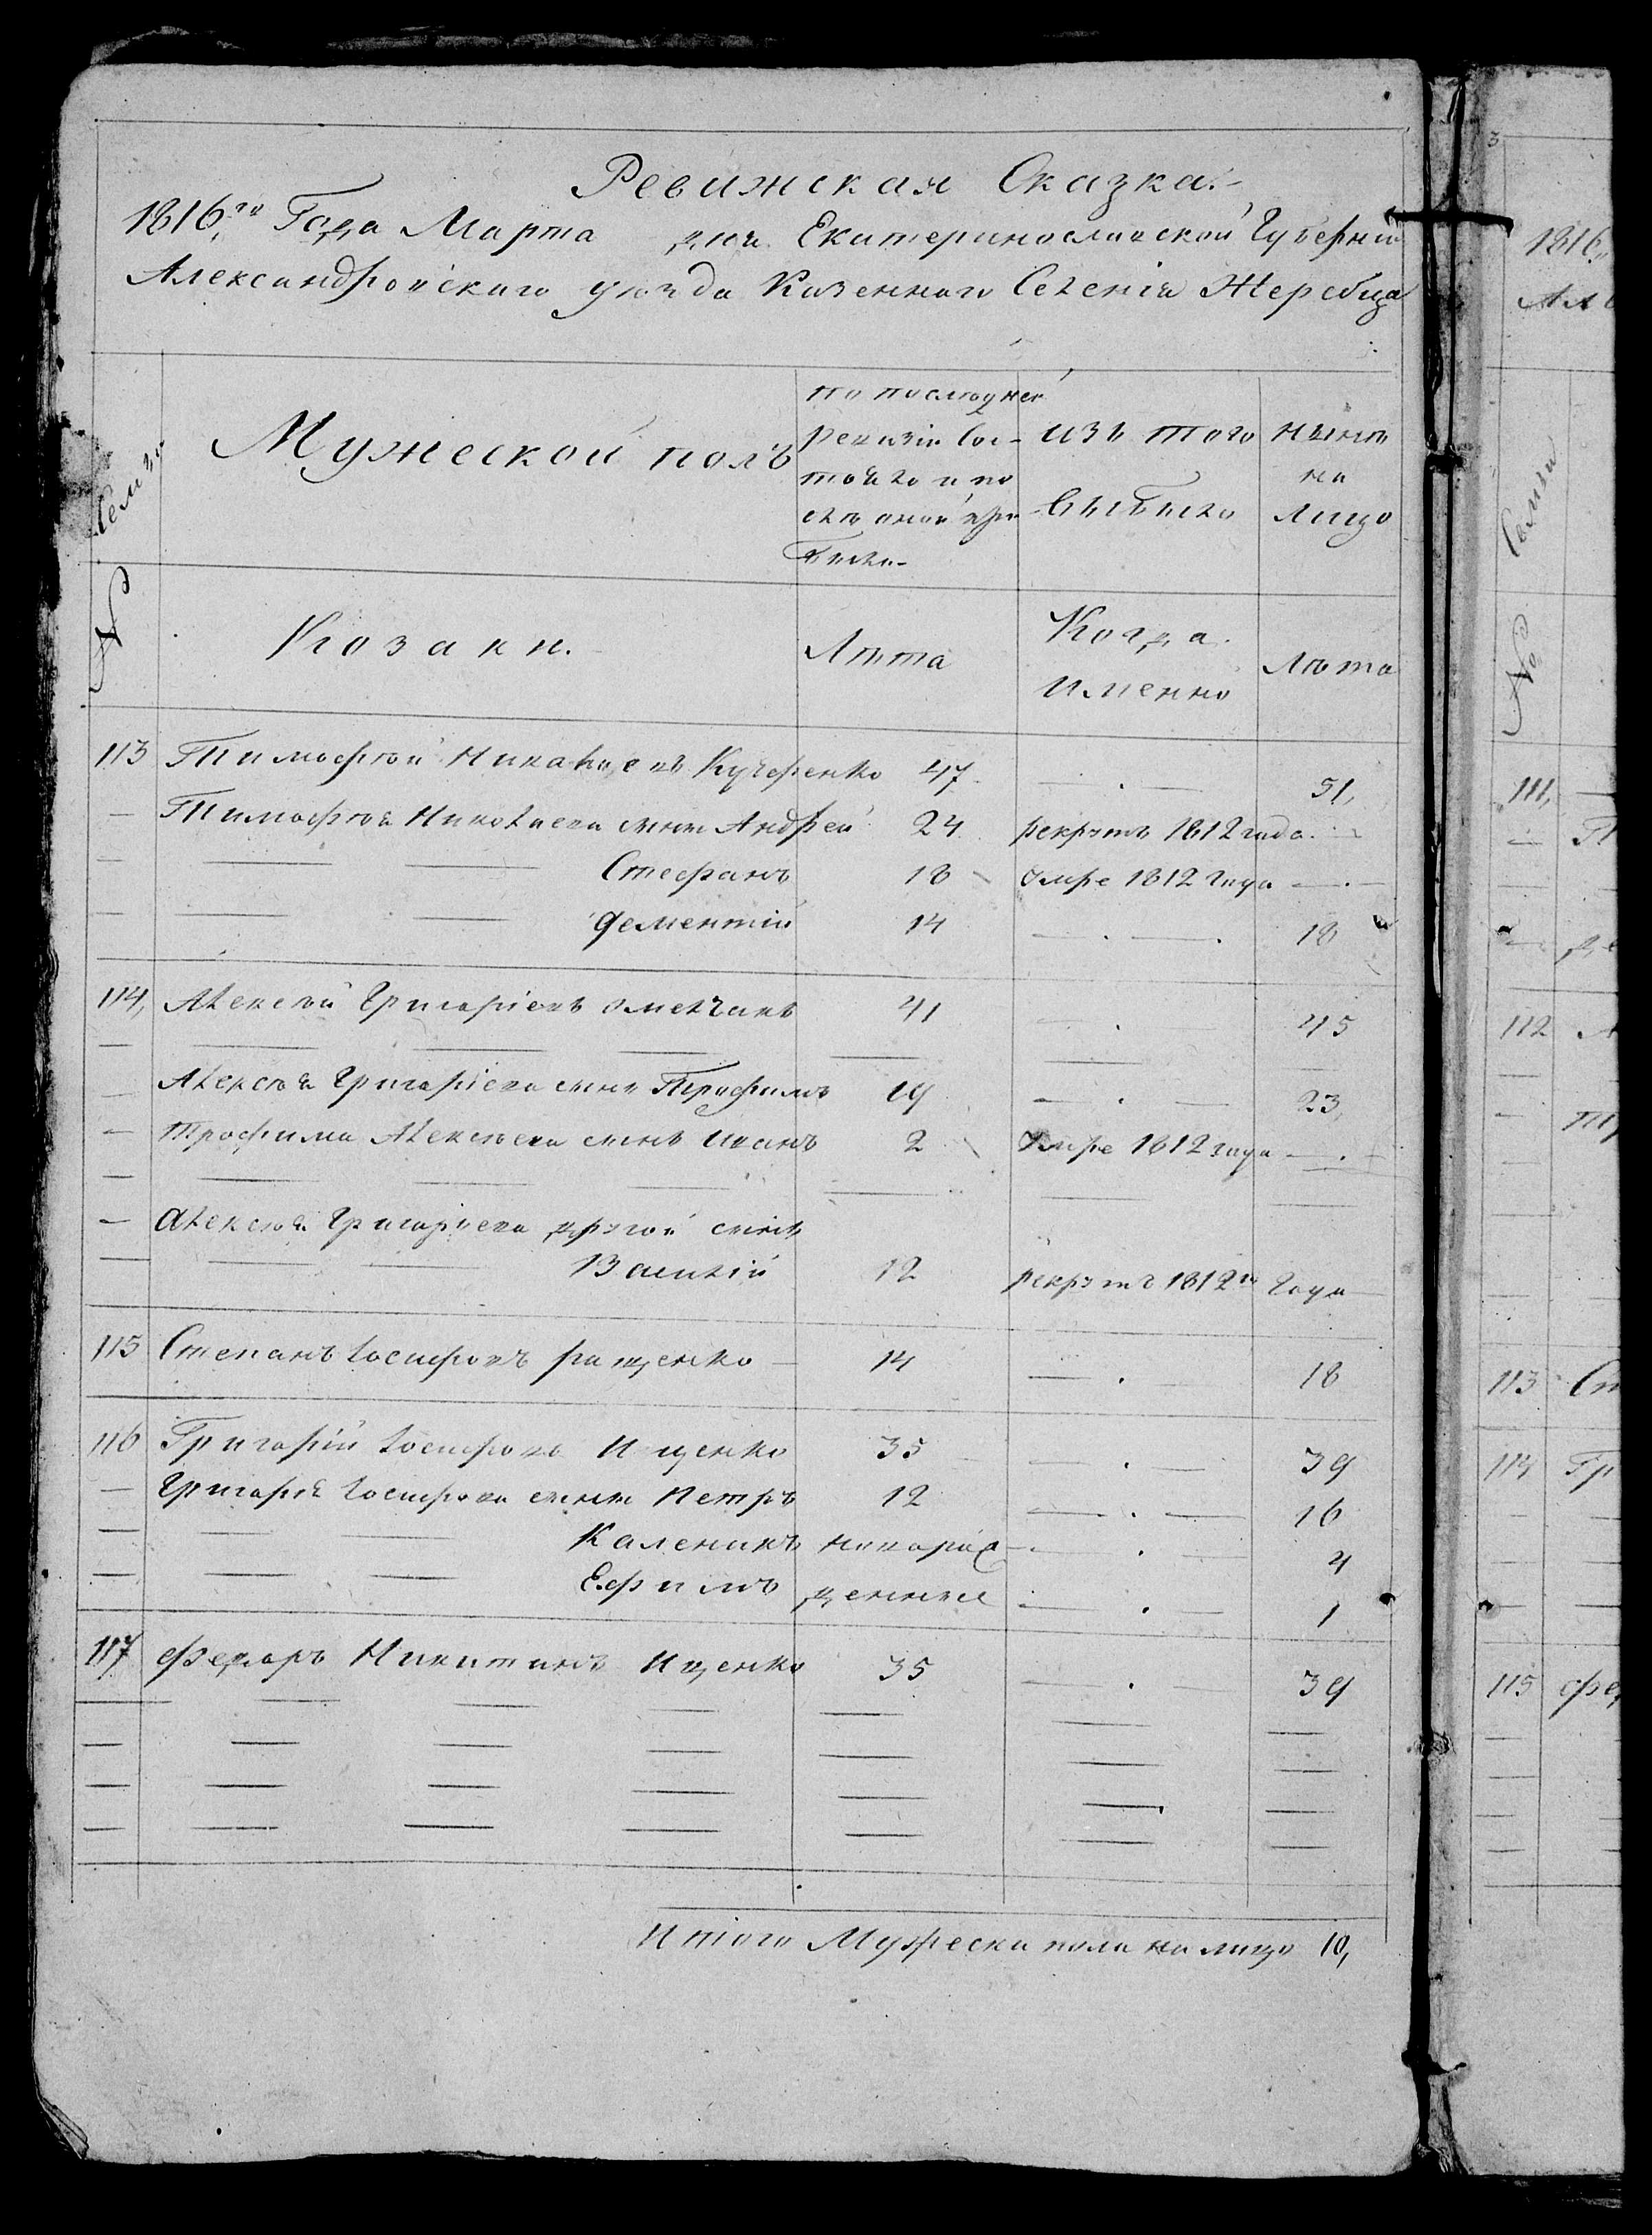 Ревижская Сказка.
1816го Года Марта дня Екатеринославской Губернии
Александровскаго уезда Казеннаго Селенія Жеребца
№ Семьи
Мужеской полъ
по последней
ревизіи Сос-
тояло и по
слѣ оной при
было.
изъ того
выбыло
нынѣ
на
лицо
Козаки.
Лѣта
Когда
именно
Лѣта
113 Тимофѣй Николаевъ Кучеренко 47 — . — 51,
— Тимофѣя Николаева сынъ Андрей 24 рекрутъ 1812 года.
— — — Стефанъ 18 умре 1812 Года — . —
— — — Дементій 14 — . — 18
114, Алексѣй Григоріевъ Омелчакъ 41 — . — 45
— Алексѣя Григоріева сынъ Трофимъ 19 — . — 23,
— Трофима Алексѣева сынъ Иванъ 2 Умре 1812 года — . —
— Алексѣя Григоріева другой сынъ
— — — Василій 12 рекрутъ 1812го Года
115 Степанъ Іосифовъ Ращенко — 14 — . — 18
116 Григорій Іосифовъ Ищенко 35 — . — 39
— Григорія Іосифова сынъ Петръ 12 — . — 16
— — — Каленикъ новорож — . — 4
— — — Ефимъ денные — . — 1
117 Федоръ Никитинъ Ищенко 35 — . — 39
Итого Мужеска пола на лицо 10,
3
1816
Але
№ Семьи
111,
112
113 Ст
114 Гр
115 Фе